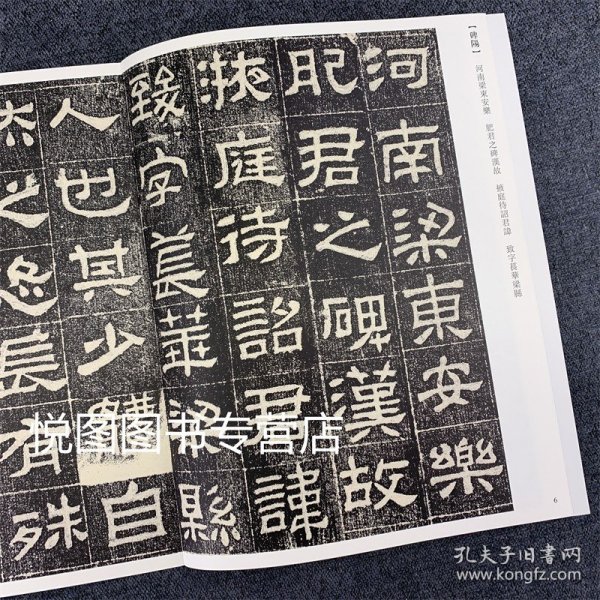 【碑陽】 河南梁東安樂 肥君之碑漢故 掖庭待詔君諱 致字萇華梁縣
河南梁東安樂
肥君之碑漢故
掖庭待詔君諱
致字萇華梁縣
人也其少體自
然之恣長有殊
6
悦图图书专营店
孔夫子旧书网
www.kongfz.com